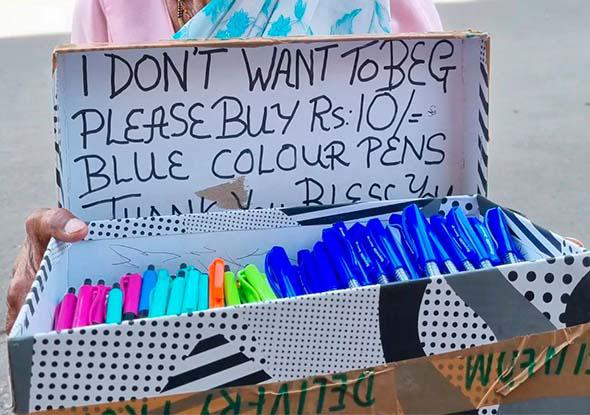 I DON'T WANT TO BEG
PLEASE BUY Rs: 10/=
BLUE COLOUR PENS
THANK YOU BLESS YOU
DELIVERY